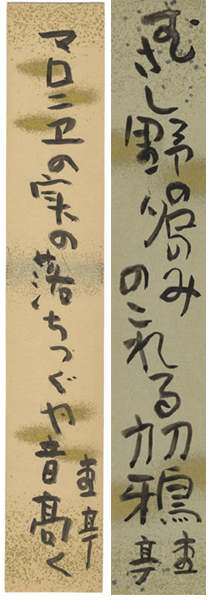 むさし野の名のみ
のこれる初鴉
亭
マロニヱの実の落ちつぐや音高く
亭